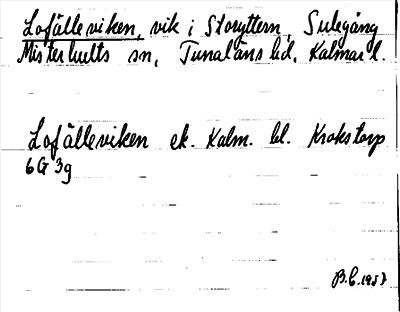 Lofälleviken, vik i Storyttern, Sulegång
Misterhults sn, Tunaläns hd, Kalmar l.
Lofälleviken ek. Kalm. bl. Krokstorp
6G3g
B.E. 1957